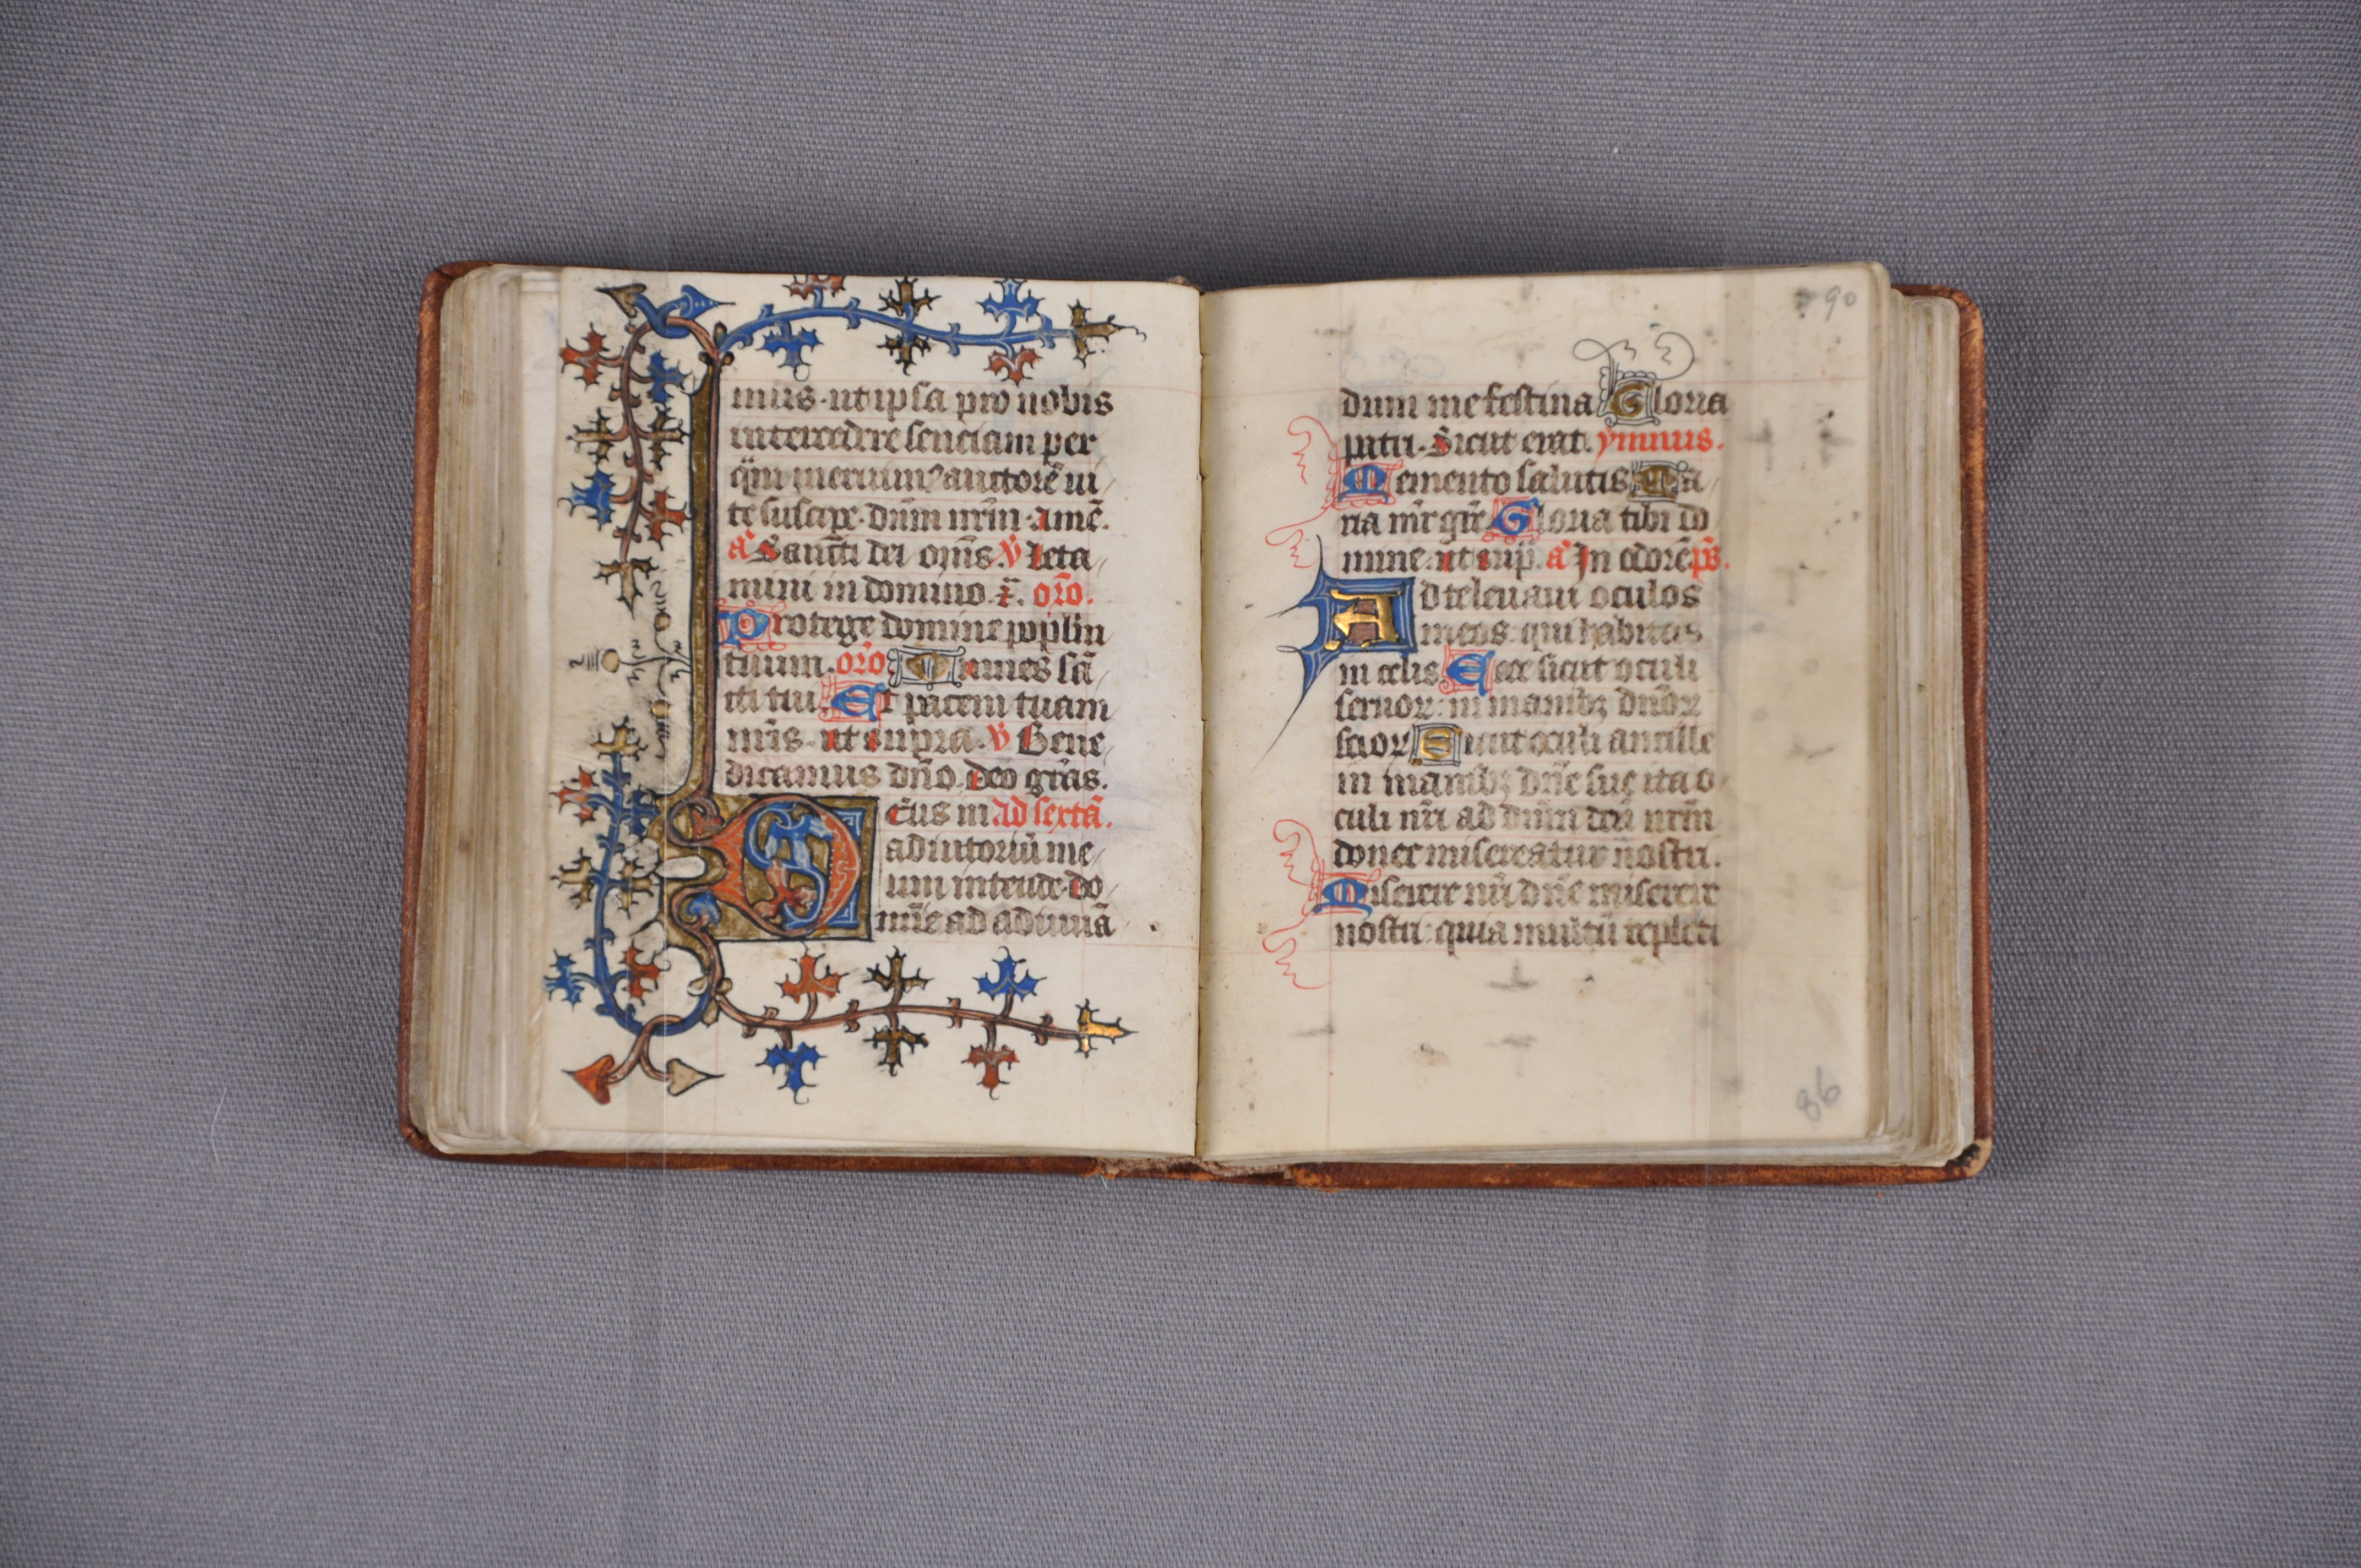 mus. ut ipsa pro nobis
intercedere senciam per
qm̄ meruimꝰ auctorē ui
te suscipe. dn̄m nr̄m. amē.
aͣ Sancti dei om̄s. ℣ leta
mini in domino. ⁊. or̄o.
Protege domine pp̄lm
tuum. or̄o Omnes sā
cti tui. Et pacem tuam
nr̄is. ut supra. ℣ Bene
dicamus dn̄o. deo gr̄as.
Eus in Ad sextā.
D adiutoriū me
um intende. do
mīe ad adiuuā
90
dum me festina Gloria
patri. Sicut erat. ymnus.
Memento salutis Ma
ria mr̄ gr̄e Gloria tibi do
mine. ut sup̄. aͣ In odorē ps̄.
Ad te leuaui oculos
meos: qui habitas
in celis. Ecce sicut oculi
seruoꝝ: in manibꝫ dn̄oꝝ
suoꝝ Sicut oculi ancille
in manibꝫ dn̄e sue ita o
culi nr̄i ad dn̄m deū nr̄m
donec misereatur nostri.
Miserere nr̄i dn̄e miserere
nostri: quia multū repleti
86